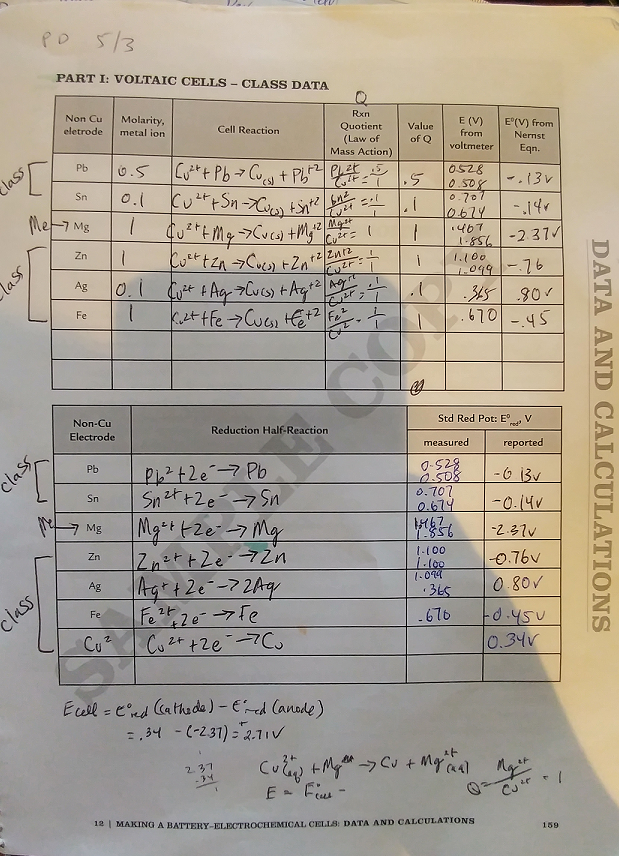 PD 5/3
PART I: VOLTAIC CELLS – CLASS DATA
Q
Non Cu eletrode
Molarity, metal ion
Cell Reaction
Rxn Quotient (Law of Mass Action)
Value of Q
E (V) from voltmeter
E°(V) from Nernst Eqn.
class
Pb 0.5 Cu²⁺ + Pb → Cu(s) + Pb⁺² Pb²⁺/Cu²⁺ = .5/1 .5 0.528 0.508 -.13v
Sn 0.1 Cu²⁺ + Sn → Cu(s) + Sn⁺² Sn²/Cu²⁺ = .1/1 .1 0.707 0.674 -.14v
Me →
Mg 1 Cu²⁺ + Mg → Cu(s) + Mg⁺² Mg²⁺/Cu²⁺ = 1/1 1 1.856 -2.37v
class
Zn 1 Cu²⁺ + Zn → Cu(s) + Zn⁺² Zn⁺²/Cu²⁺ = 1/1 1 1.100 1.099 -.76
Ag 0.1 Cu²⁺ + Ag → Cu(s) + Ag⁺² Ag⁺²/Cu²⁺ = .1/1 .1 .365 .80v
Fe 1 Cu²⁺ + Fe → Cu(s) + Fe⁺² Fe²/Cu² = 1/1 1 .670 -.45
Non-Cu Electrode
Reduction Half-Reaction
Std Red Pot: E°red, V
measured
reported
class
Pb Pb² + 2e⁻ → Pb 0.528 0.508 -0.13v
Sn Sn²⁺ + 2e⁻ → Sn 0.707 0.674 -0.14v
Me →
Mg Mg²⁺ + 2e⁻ → Mg 1.856 -2.37v
class
Zn Zn²⁺ + 2e⁻ → Zn 1.100 1.100 1.099 -0.76v
Ag Ag⁺ + 2e⁻ → 2Ag .365 0.80v
Fe Fe²⁺ + 2e⁻ → Fe .670 -0.45v
Cu² Cu²⁺ + 2e⁻ → Cu 0.34v
Ecell = E°red (cathode) - E°red (anode)
= .34 - (-2.37) = +2.71V
2.37
.34
Cu²⁺(aq) + Mg → Cu + Mg²⁺(aq)
Q = Mg²⁺/Cu²⁺ = 1
E = E°cell -
12 | MAKING A BATTERY–ELECTROCHEMICAL CELLS: DATA AND CALCULATIONS
159
DATA AND CALCULATIONS
SAMPLE COPY